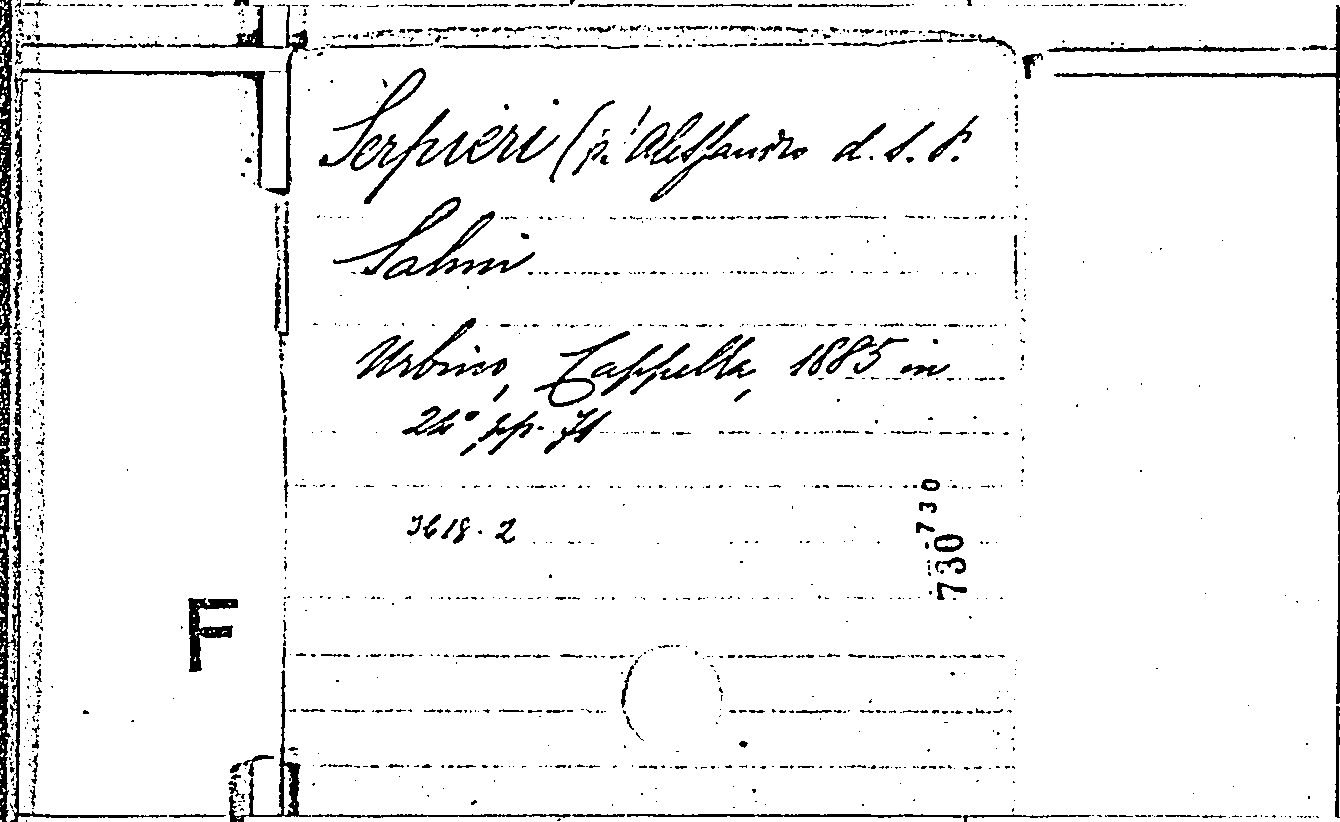 Serpieri (p. Alessandro d. S. P.
Salmi
Urbino, Cappella, 1885 in
24° pp. 71
7618.2
730
730
F